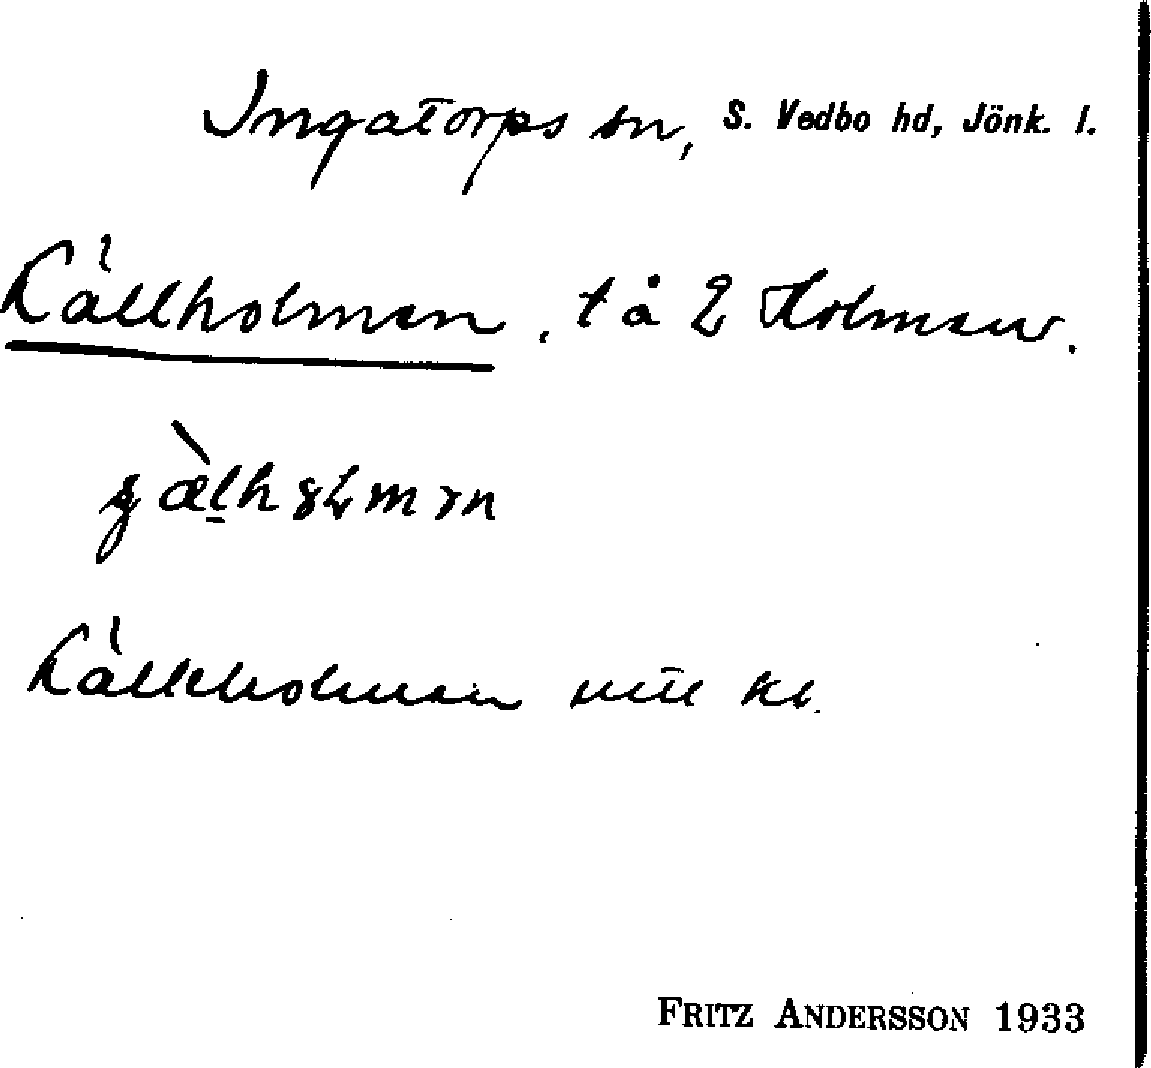 Ingatorps sn, S. Vedbo hd, Jönk. l.
Källholmen, t å 2 Holmen.
Källeholmen
FRITZ ANDERSSON 1933